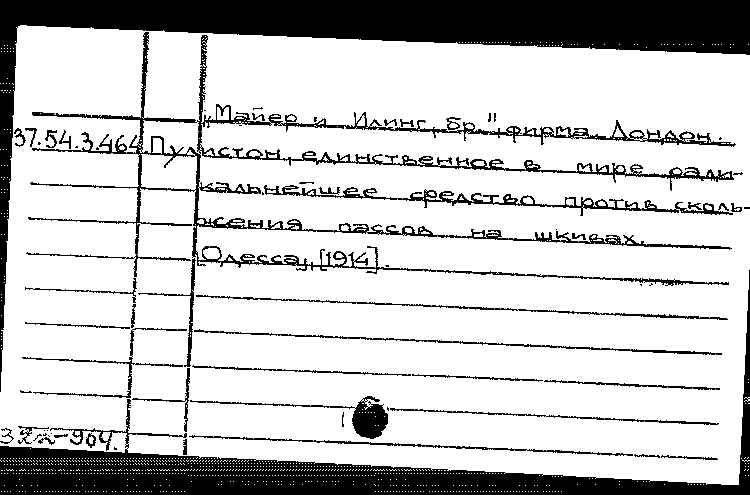 „Майер и Илинг, бр.", фирма. Лондон.
37.54.3.464 Пулистон, единственное в мире ради-
кальнейшее средство против сколь-
жения пассов на шкивах.
[Одесса], [1914].
-904.